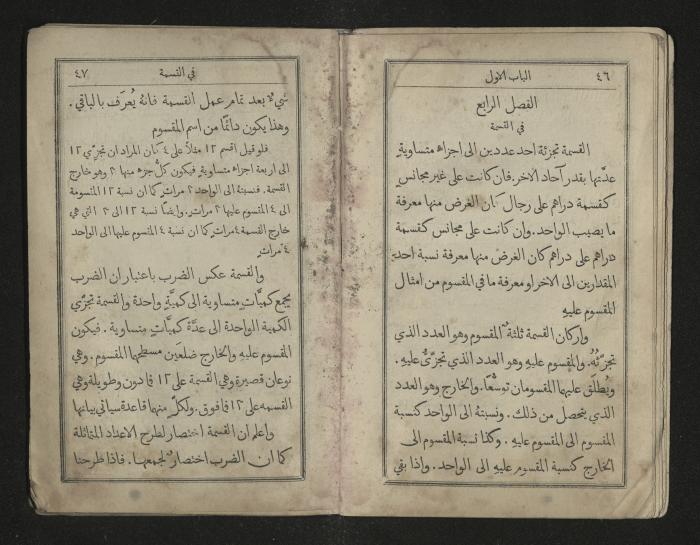 ٤٦
الباب الاول
الفصل الرابع
في القسمة
القسمة تجزئة احد عددين الى اجزاء متساويةٍ
عدّتها بقدر آحاد الاخر. فان كانت على غير مجانسٍ
كقسمة دراهم على رجال كان الغرض منها معرفة
ما يصيب الواحد. وان كانت على مجانس كقسمة
دراهم على دراهم كان الغرض منها معرفة نسبة احد
المقدارين الى الاخر او معرفة ما في المقسوم من امثال
المقسوم عليهِ
واركان القسمة ثلثةٌ المقسوم وهو العدد الذي
تجزّئهُ. والمقسوم عليهِ وهو العدد الذي تجزّئ عليهِ.
ويُطلَق عليهما المقسومان توسُّعًا. والخارج وهو العدد
الذي يتحصل من ذلك. ونسبتهُ الى الواحد كنسبة
المقسوم الى المقسوم عليهِ. وكذا نسبة المقسوم الى
الخارج كنسبة المقسوم عليهِ الى الواحد. واذا بقي
في القسمة
٤٧
شيءٌ بعد تمام عمل القسمة فانهُ يُعرَف بالباقي.
وهذا يكون دائمًا من اسم المقسوم
فلو قيل اقسم ١٢ مثلاً على ٤ كان المراد ان تجزّئ ١٢
الى اربعة اجزاء متساويةٍ فيكون كلُّ جزء منها ٣ وهو خارج
القسمة. فنسبتهُ الى الواحد ٣ مراتٍ كما ان نسبة ١٢ المقسومة
الى ٤ المقسوم عليها ٣ مرات. وايضًا نسبة ١٢ الى ٣ التي هي
خارج القسمة ٤ مرات كما ان نسبة ٤ المقسوم عليها الى الواحد
٤ مرات
والقسمة عكس الضرب باعتبار ان الضرب
يجمع كميَّاتٍ متساوية الى كميَّةٍ واحدة والقسمة تجزّئ
الكمية الواحدة الى عدَّة كميَّاتٍ متساوية. فيكون
المقسوم عليهِ والخارج ضلعَين مسطحها المقسوم. وهي
نوعان قصيرة وهي القسمة على ١٢ فما دون وطويلة وهي
القسمه على ١٢ فما فوق. ولكلٍّ منها قاعدة سياتي بيانها
واعلم ان القسمة اختصار لطرح الاعداد المتماثلة
كما ان الضرب اختصارٌ لجمعها. فاذا طرحنا